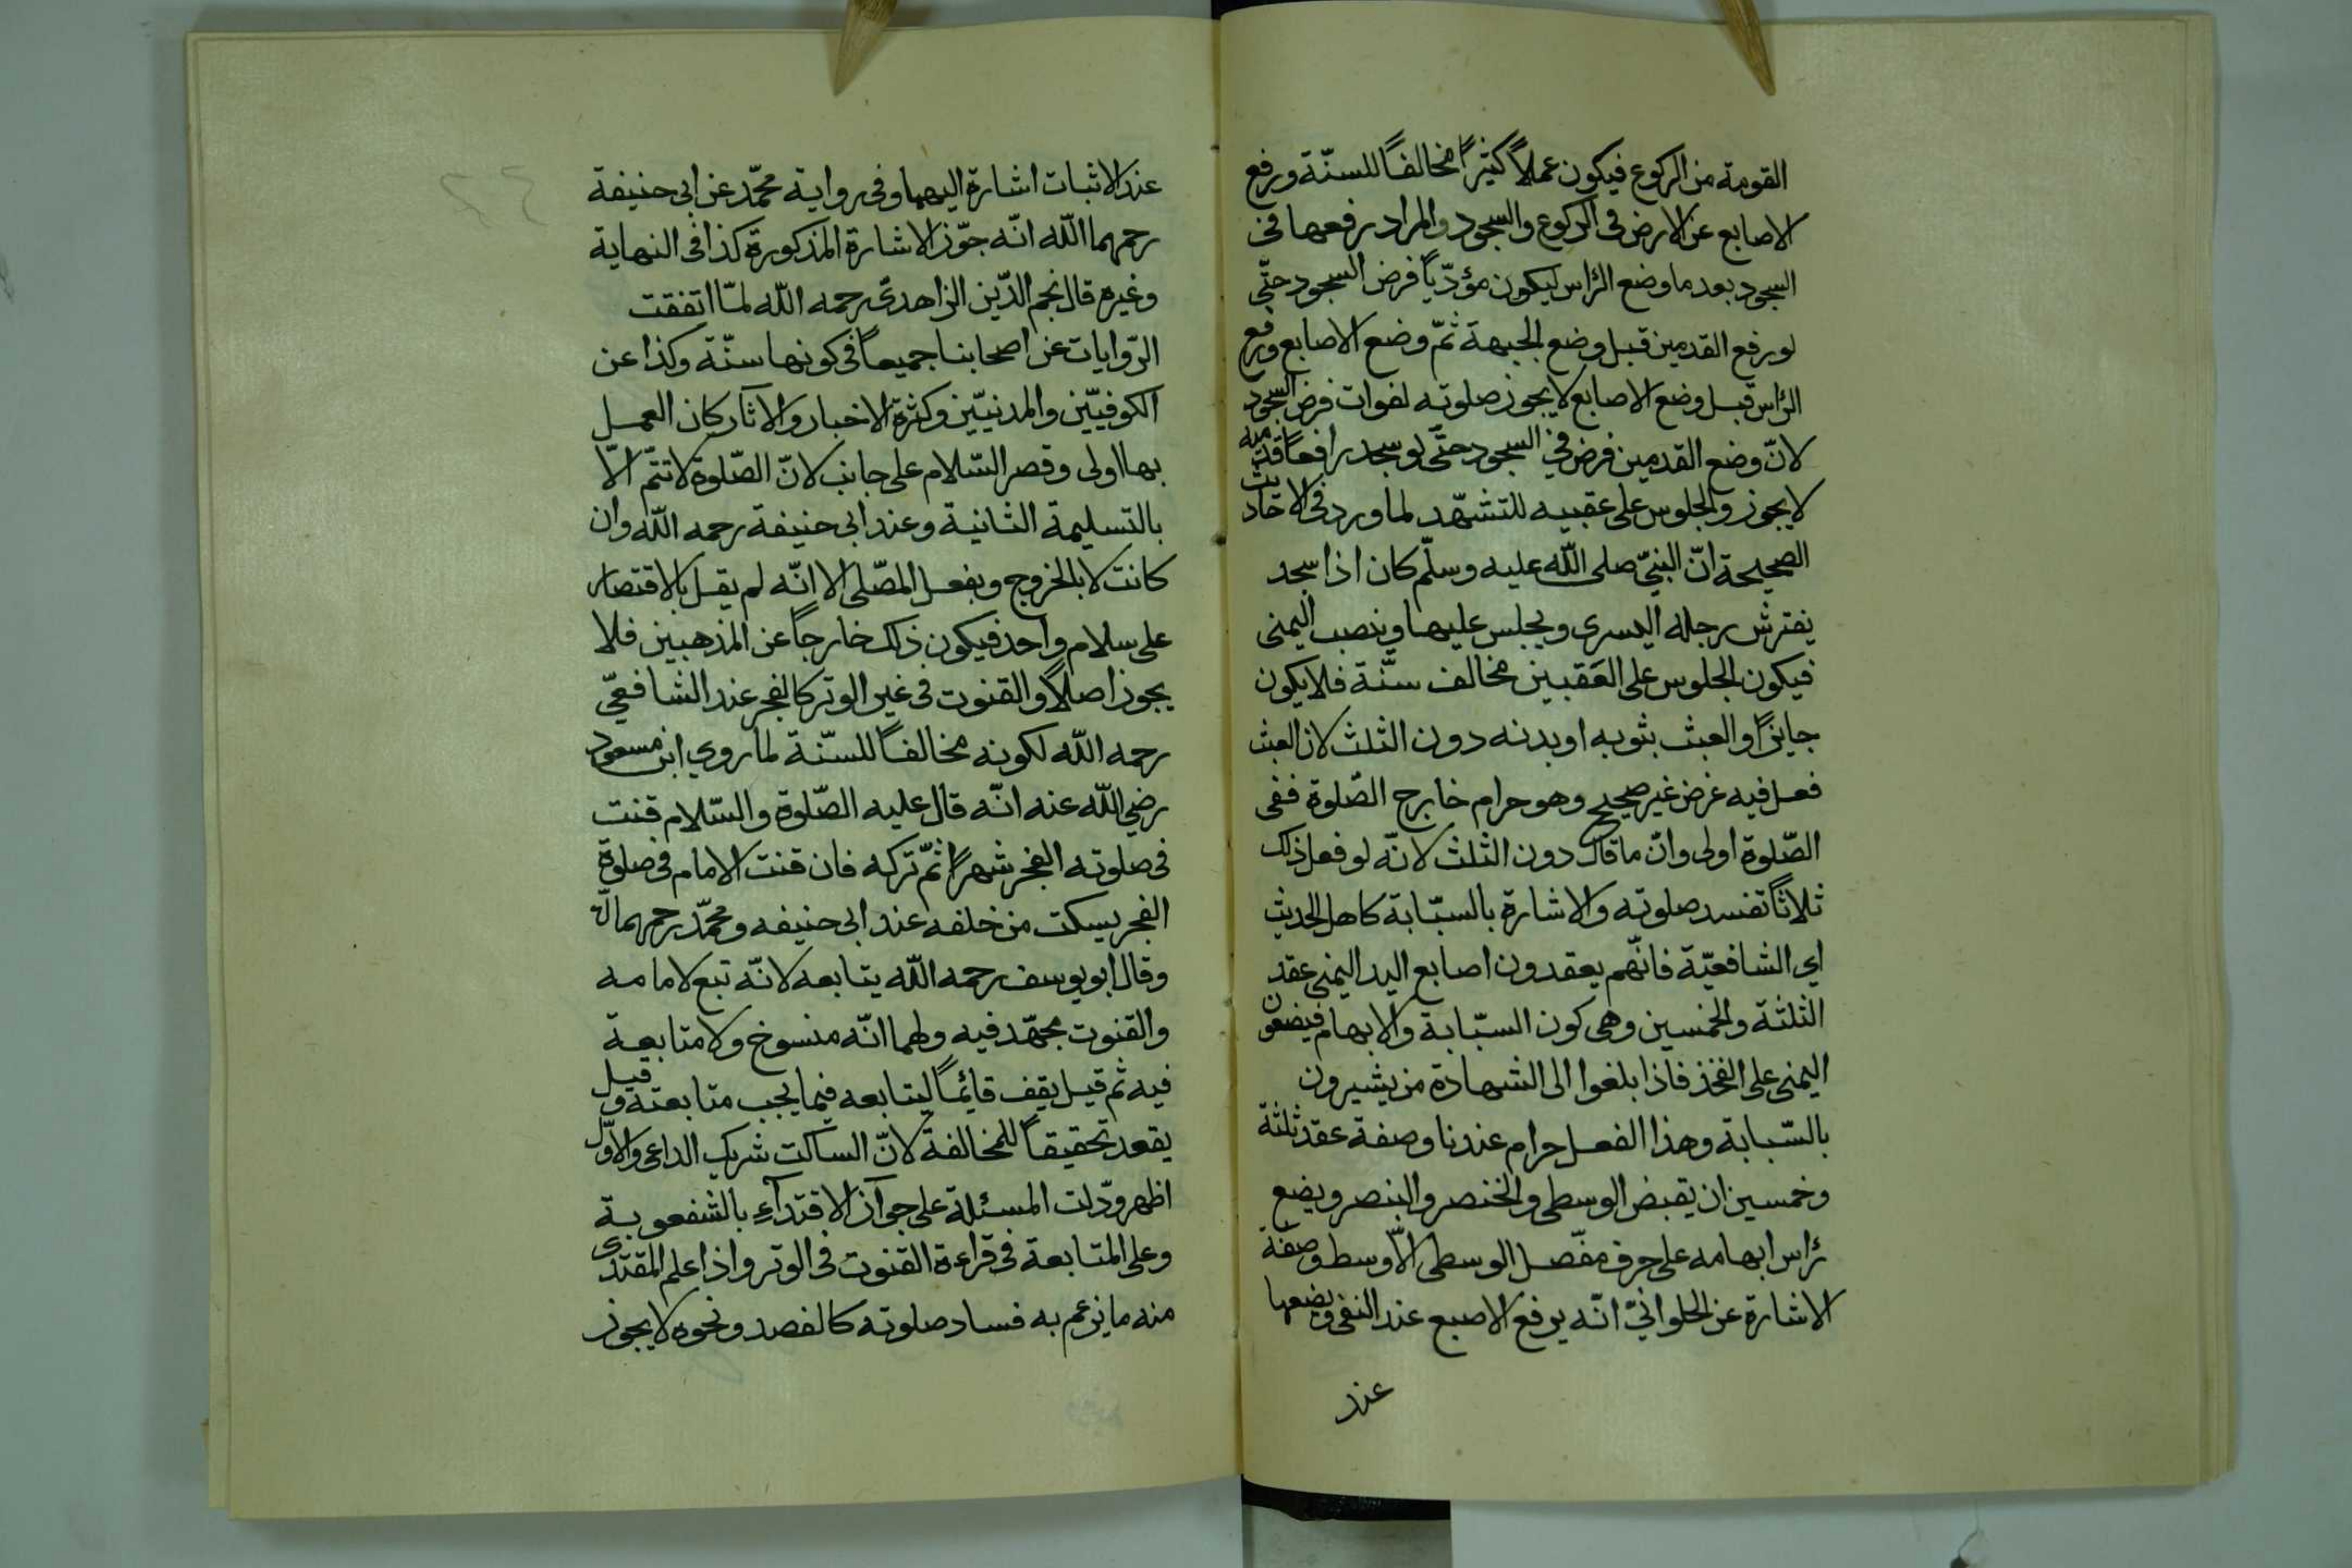 القومة من الركوع فيكون عملاً كثيراً مخالفاً للسنّة ورفع
الاصابع عن الارض فى الركوع والسجود والمراد رفعها فى
السجود بعد ما وضع الرّاس ليكون مؤدّياً فرض السجود حتّى
لو رفع القدمين قبل وضع الجبهة ثمّ وضع الاصابع ورفع
الرّاس قبل وضع الاصابع لا يجوز صلوته لفوات فرض السجود
لانّ وضع القدمين فرض فى السجود حتّى لو سجد رافعاً قدميه
لا يجوز والجلوس على عقبيه للتشهّد لما ورد فى الاحاديث
الصحيحة انّ النبىّ صلى اللّه عليه وسلّم كان اذا سجد
يفترش رجله اليسرى ويجلس عليها وينصب اليمنى
فيكون الجلوس على العَقبين مخالف سنّة فلا يكون
جايزاً والعبث بثوبه او بدنه دون الثلث لان العبث
فعل فيه غرض غير صحيح وهو حرام خارج الصّلوة ففى
الصّلوة اولى وانّ ما قال دون الثلث لانّه لو فعل ذلك
ثلاثاً تفسد صلوته والاشارة بالسبّابة كاهل الحديث
اى الشافعيّة فانّهم يعقدون اصابع اليد اليمنى عقد
الثلثة والخمسين وهى كون السبّابة والابهام فيضعون
اليمنى على الفخذ فاذا بلغوا الى الشهادة من يشيرون
بالسّبابة وهذا الفعل حرام عندنا وصفة عقد ثلثة
وخمسين ان يقبض الوسطى والخنصر والبنصر ويضع
رٔاس ابهامه على حرف مفصل الوسطى الاوسط وصفة
الاشارة عن الحلوانىّ انّه يرفع الاصبع عند النفى ويضعها
عند
عند الاثبات اشارة اليهما وفى رواية محمّد عن ابى حنيفة
رحمهما اللّه انّه جوّز الاشارة المذكورة كذا فى النهاية
وغيره قال نجم الدّين الزاهدىّ رحمه اللّه لمّا اتفقت
الرّوايات عن اصحابنا جميعاً فى كونها سنّة وكذا عن
الكوفيّين والمدنيّين وكثرة الاخبار والاثار كان العمل
بها اولى وقصر السّلام على جانب لانّ الصّلوة لا تتمّ الّا
بالتسليمة الثانية وعند ابى حنيفة رحمه اللّه وان
كانت لا بالخروج وبفعل المصّلى الا انّه لم يقل بالاقتصار
على سلام واحد فيكون ذلك خارجاً عن المذهبين فلا
يجوز اصلاً والقنوت فى غير الوتر كالفجر عند الشافعىّ
رحمه اللّه لكونه مخالفاً للسنّة لما روى ابن مسعود
رضى اللّه عنه انّه قال عليه الصّلوة والسّلام قنت
فى صلوته الفجر شهراً ثمّ تركه فان قنت الامام فى صلوة
الفجر يسكت من خلفه عند ابى حنيفه ومحمّد رحمهما اللّه
وقال ابو يوسف رحمه اللّه يتابعه لانّه تبع لامامه
والقنوت مجتهد فيه ولهما انّه منسوخ ولا متابعة
فيه ثم قيل يقف قائماً ليتابعه فيما يجب متابعته وقيل
يقعد تحقيقاً للمخالفة لانّ الساكت شريك الداعى والاوّل
اظهر ودّلت المسئلة على جواز الاقتداء بالشفعوية
وعلى المتابعة فى قراءة القنوت فى الوتر واذا علم المقتدى
منه ما يزعم به فساد صلوته كالفصد ونحوه لا يجوز